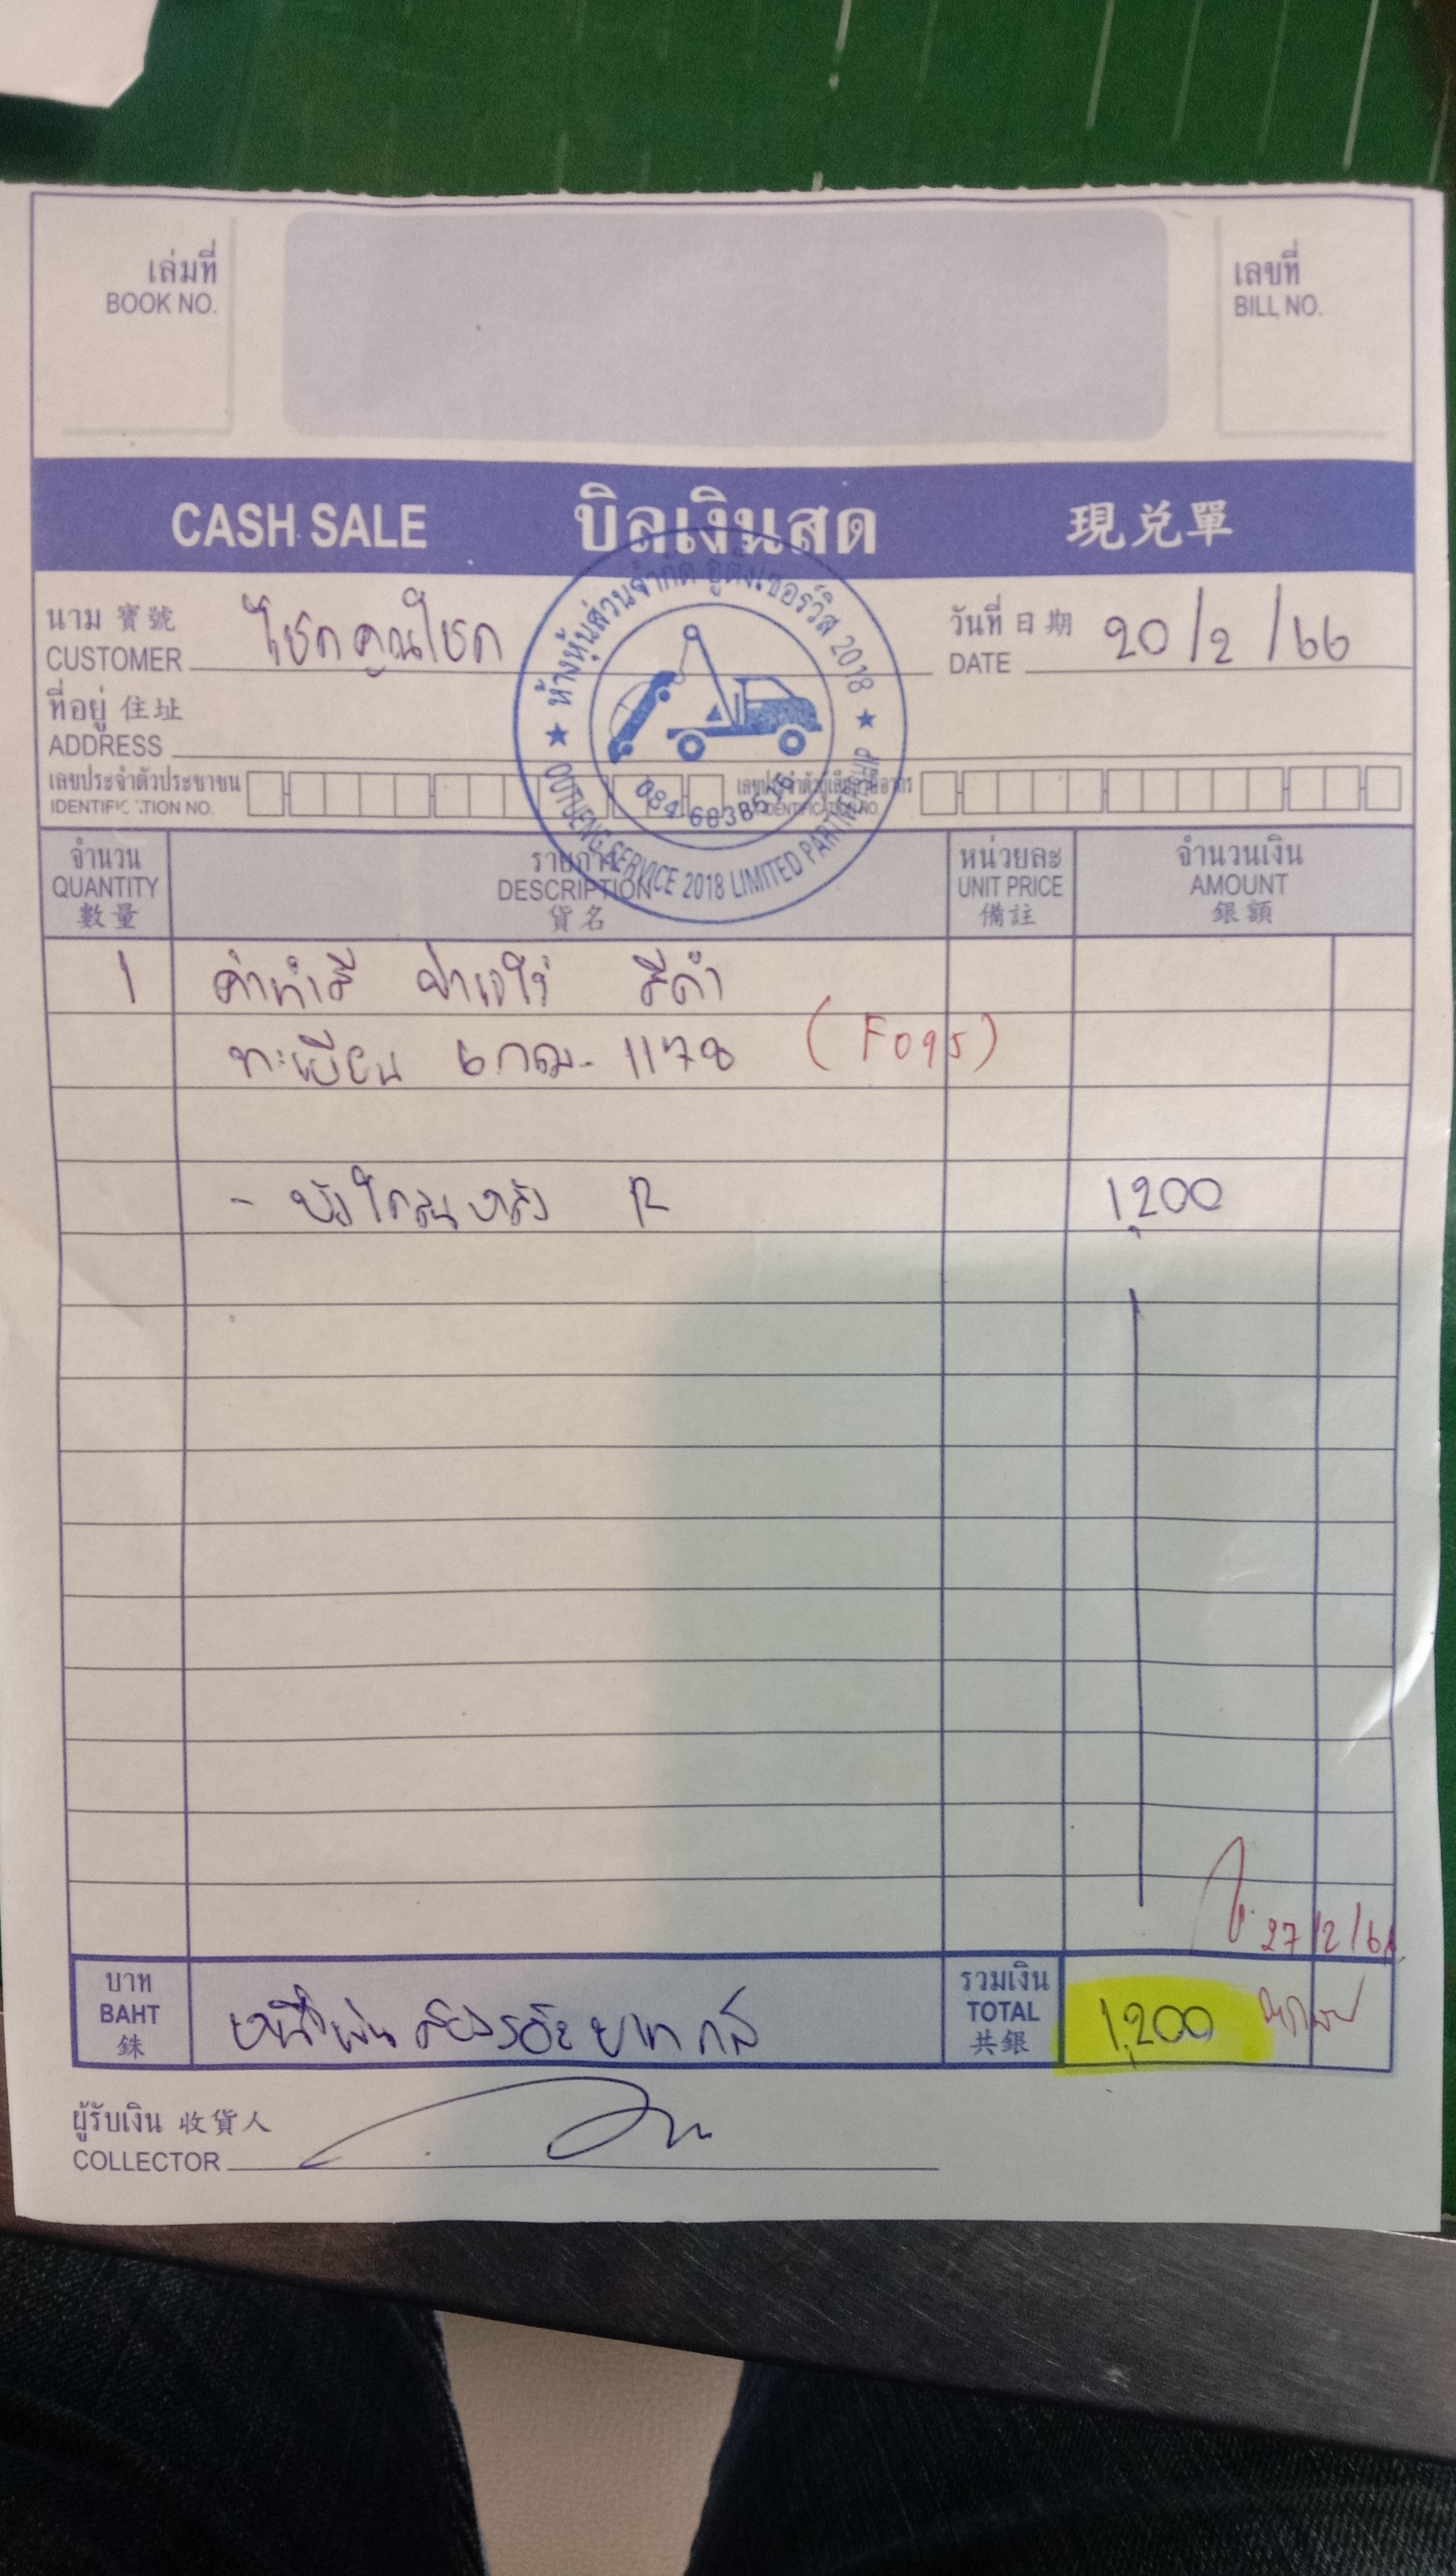 เล่มที่
BOOK NO.
เลขที่
BILL NO.
CASH SALE บิลเงินสด 現兑單
นาม 寶號 โชคคูณโชค
CUSTOMER
วันที่ 日期 20/2/66
DATE
ที่อยู่ 住址
ADDRESS
เลขประจำตัวประชาชน
IDENTIFICATION NO.
ห้างหุ้นส่วนจำกัด อู่ตังเซอร์วิส 2018
OOTUENG SERVICE 2018 LIMITED PARTNERSHIP
จำนวน
QUANTITY
數量
รายการ
DESCRIPTION
貨名
หน่วยละ
UNIT PRICE
備註
จำนวนเงิน
AMOUNT
銀額
1 ค่าทำสี ปาเจโร่ สีดำ
ทะเบียน 6กฌ- 1178 (F095)
- บังโคลนหลัง R 1,200
27/2/66
บาท
BAHT
銖
หนึ่งพันสองร้อยบาทถ้วน
รวมเงิน
TOTAL
共銀
1,200
ผู้รับเงิน 收貨人
COLLECTOR